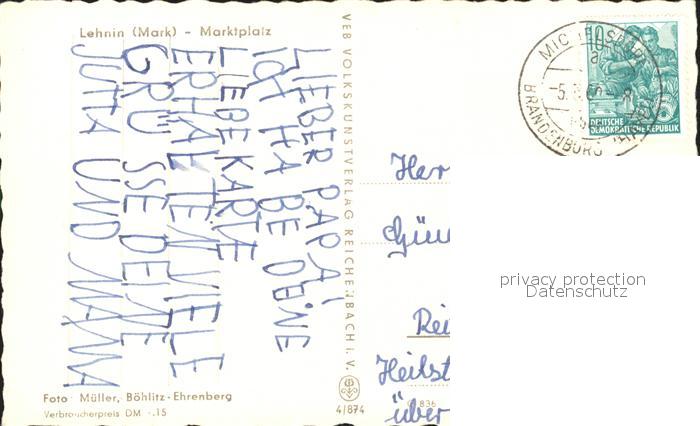 Lehnin (Mark) - Marktplatz
LIEBER PAPA!
ICH HABE DEINE
LIEBE KARTE
ERHALTEN VIELE
GRÜSSE DEINE
JUTTA UND MAMA
Foto Müller, Böhlitz-Ehrenberg
Verbraucherpreis DM -.15
VEB VOLKSKUNSTVERLAG REICHENBACH i. V.
4/874
10
DEUTSCHE
DEMOKRATISCHE REPUBLIK
BRANDENBURG
Her
Gün
Rei
Heilst
über
836
privacy protection
Datenschutz